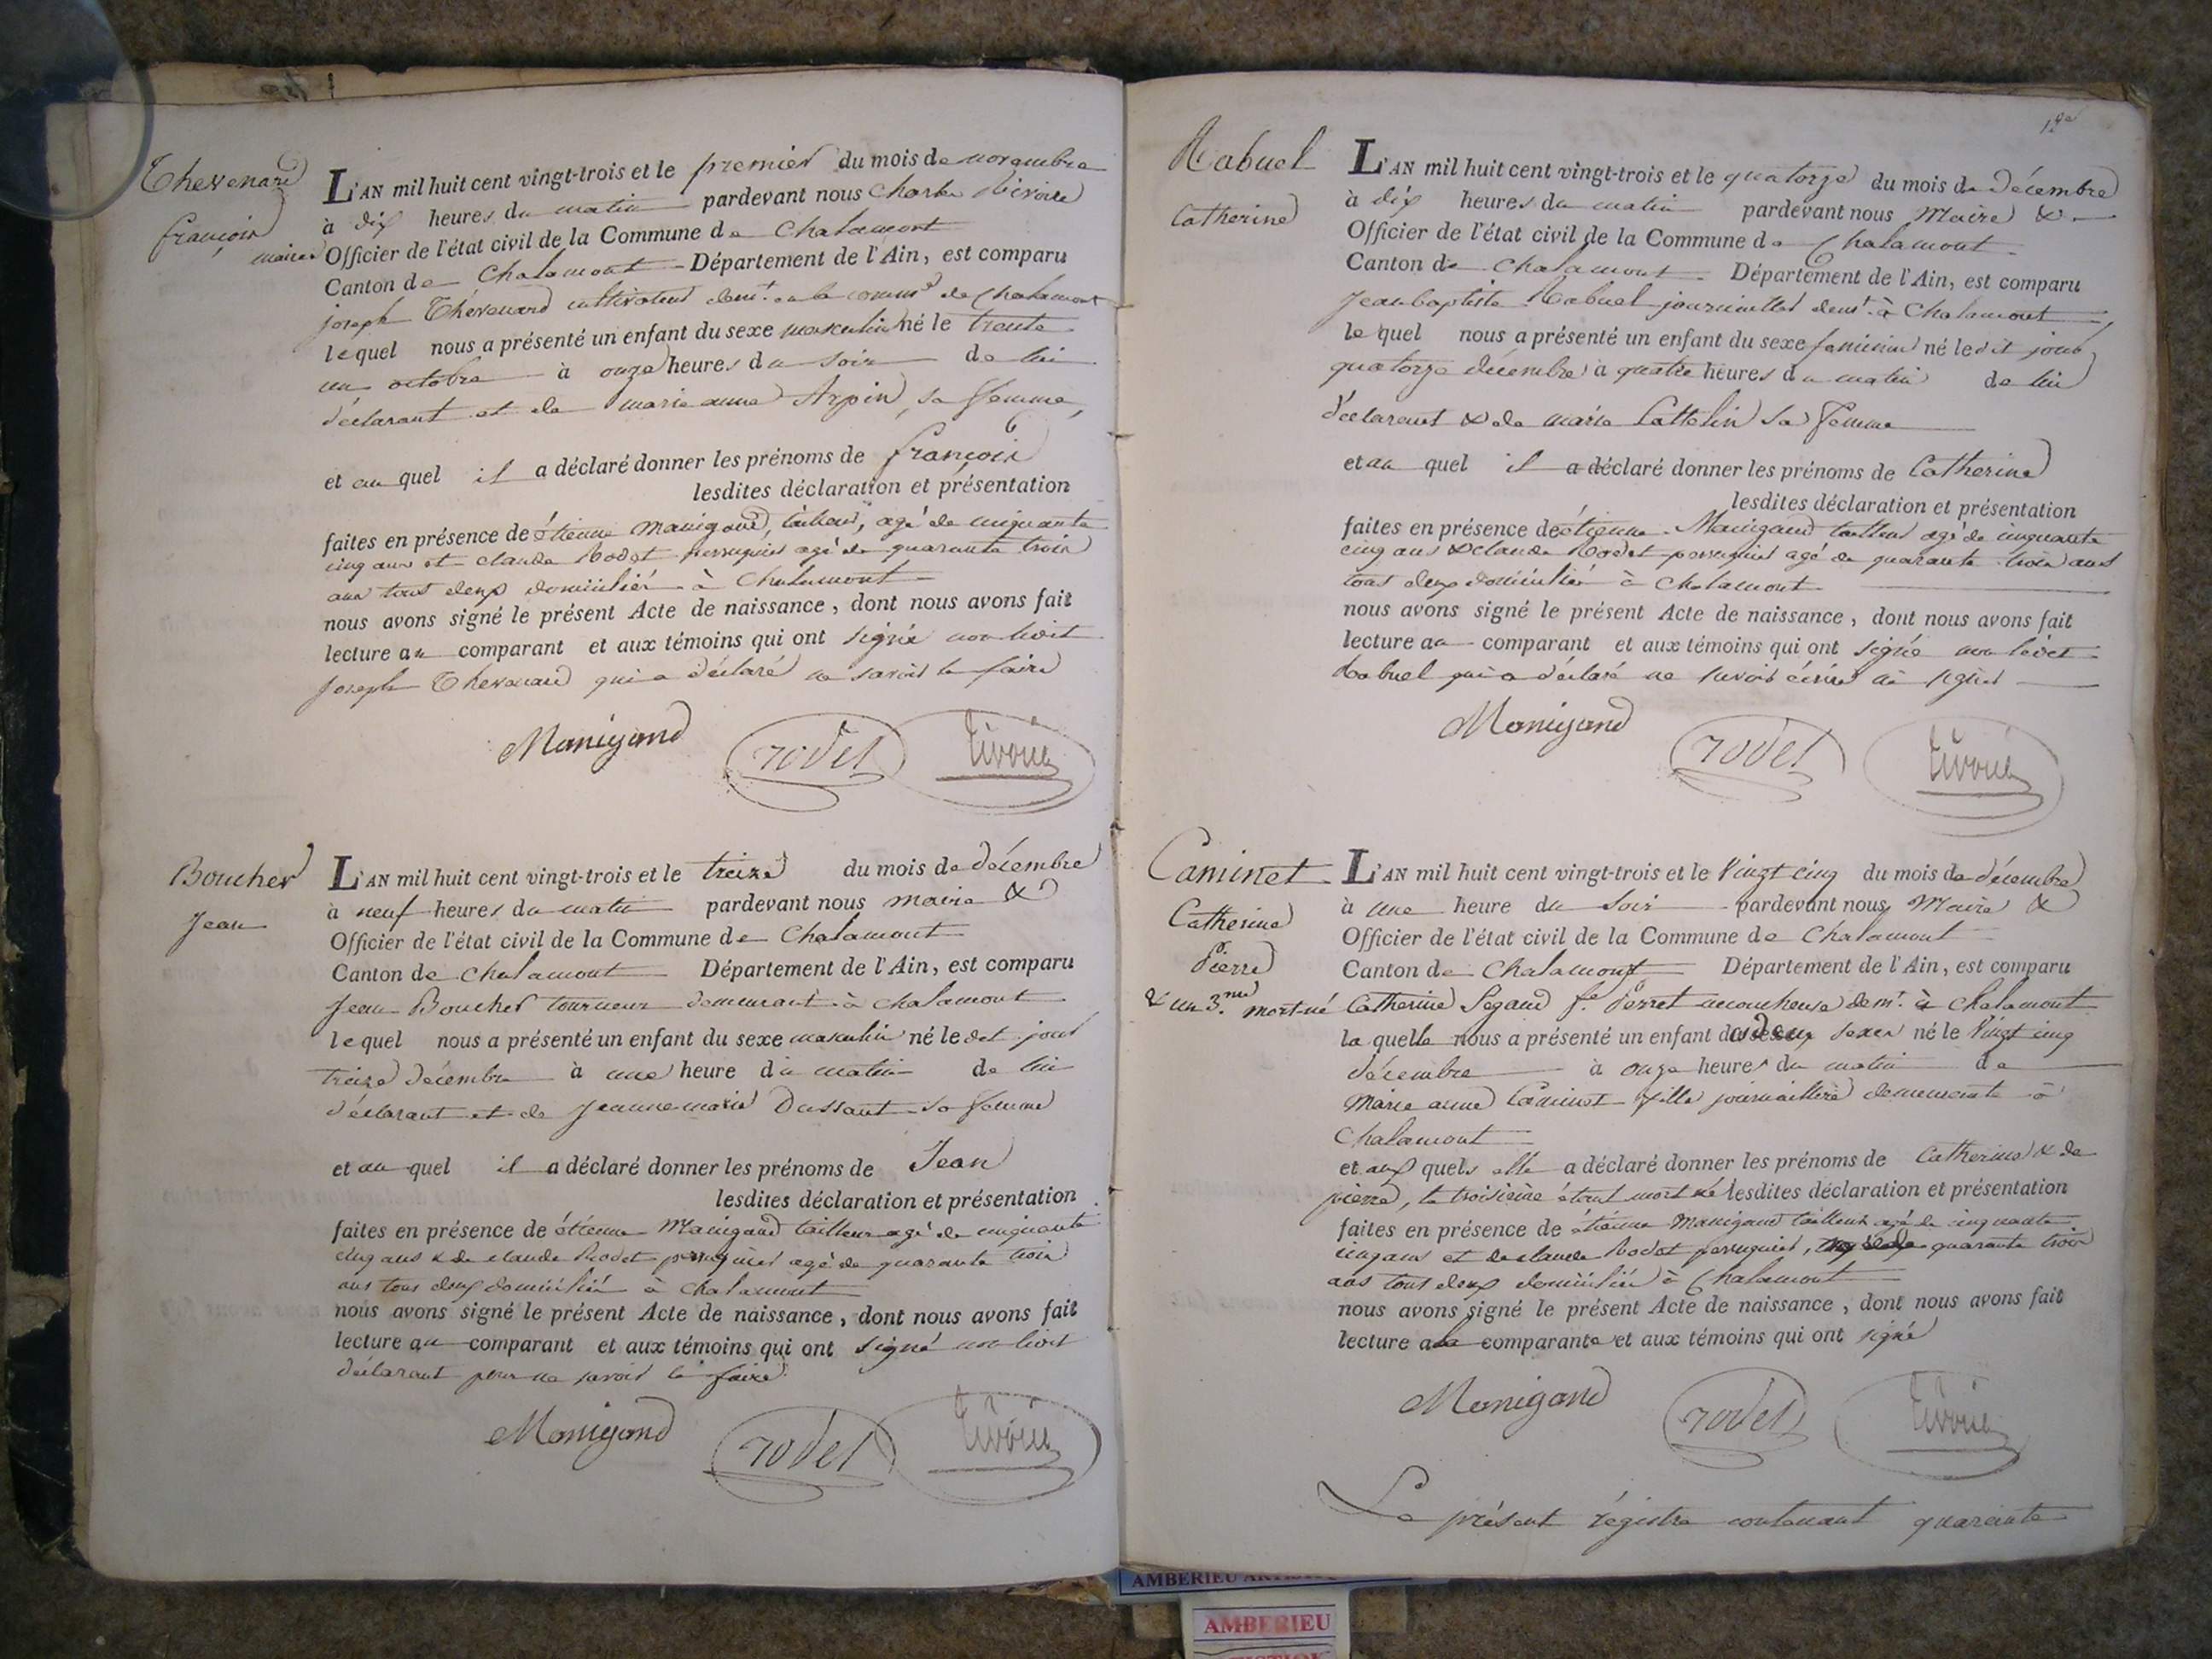 Thevenard
françois
L'AN mil huit cent vingt-trois et le premier du mois de novembre
à dix heures du matin pardevant nous Charles Rivoire
maire Officier de l'état civil de la Commune de Chalamont
Canton de Chalamont Département de l'Ain, est comparu
joseph Thévenard cultivateur demt. en la comme de Chalamont
lequel nous a présenté un enfant du sexe masculin né le trente
un octobre à onze heures du soir de lui
déclarant et de marie anne Arpin, sa femme,
et au quel il a déclaré donner les prénoms de françois
lesdites déclaration et présentation
faites en présence de étienne Manigand, tailleur, agé de cinquante
cinq ans et claude Rodet perruquier agé de quarante trois
ans tous deux domiciliés à Chalamont
nous avons signé le présent Acte de naissance, dont nous avons fait
lecture au comparant et aux témoins qui ont signé non ledit
joseph Thevenard qui a déclaré ne savoir le faire
Manigand rodet rivoire
Boucher
Jean
L'AN mil huit cent vingt-trois et le treize du mois de décembre
à neuf heures du matin pardevant nous maire &
Officier de l'état civil de la Commune de Chalamont
Canton de Chalamont Département de l'Ain, est comparu
Jean Boucher tourneur demeurant à Chalamont
lequel nous a présenté un enfant du sexe masculin né le dit jour
treize décembre à une heure du matin de lui
déclarant et de Jeanne marie Dussaut sa femme
et au quel il a déclaré donner les prénoms de Jean
lesdites déclaration et présentation
faites en présence de étienne Manigand tailleur agé de cinquante
cinq ans & de claude Rodet perruquier agé de quarante trois
ans tous deux domiciliés à Chalamont
nous avons signé le présent Acte de naissance, dont nous avons fait
lecture au comparant et aux témoins qui ont signé non ledit
déclarant pour ne savoir le faire
Manigand rodet rivoire
Rabuel
Catherine
L'AN mil huit cent vingt-trois et le quatorze du mois de Décembre
à dix heures du matin pardevant nous Maire &
Officier de l'état civil de la Commune de Chalamont
Canton de Chalamont Département de l'Ain, est comparu
Jean baptiste Rabuel journaillier demt. à Chalamont
le quel nous a présenté un enfant du sexe feminin né le dit jour
quatorze décembre à quatre heures du matin de lui
déclarant & de marie Cattelin sa femme
et au quel il a déclaré donner les prénoms de Catherine
lesdites déclaration et présentation
faites en présence de étienne Manigand tailleur agé de cinquante
cinq ans & claude Rodet perruquier agé de quarante trois ans
tous deux domiciliés à Chalamont
nous avons signé le présent Acte de naissance, dont nous avons fait
lecture au comparant et aux témoins qui ont signé non ledit
Rabuel qui a déclaré ne savoir écrire ni signer
Manigand rodet rivoire
Caminet
Catherine
Pierre
& un 3.me mort né
L'AN mil huit cent vingt-trois et le Vingt cinq du mois de décembre
à une heure du soir pardevant nous Maire &
Officier de l'état civil de la Commune de Chalamont
Canton de Chalamont Département de l'Ain, est comparu
Catherine Segaud fe. Perret accoucheuse demt. à Chalamont
la quelle nous a présenté un enfant des deux sexes né le Vingt cinq
décembre à onze heures du matin de
Marie anne Caminet fille journaillière demeurante à
Chalamont
et aux quels elle a déclaré donner les prénoms de Catherine & de
pierre, le troisième étant mort né lesdites déclaration et présentation
faites en présence de étienne Manigand tailleur agé de cinquante
cinq ans et de claude Rodet perruquier, quarante trois
ans tous deux domiciliés à Chalamont
nous avons signé le présent Acte de naissance, dont nous avons fait
lecture à la comparante et aux témoins qui ont signé
Manigand rodet rivoire
Le présent régistre contenant quarante
AMBERIEU
AMBERIEU